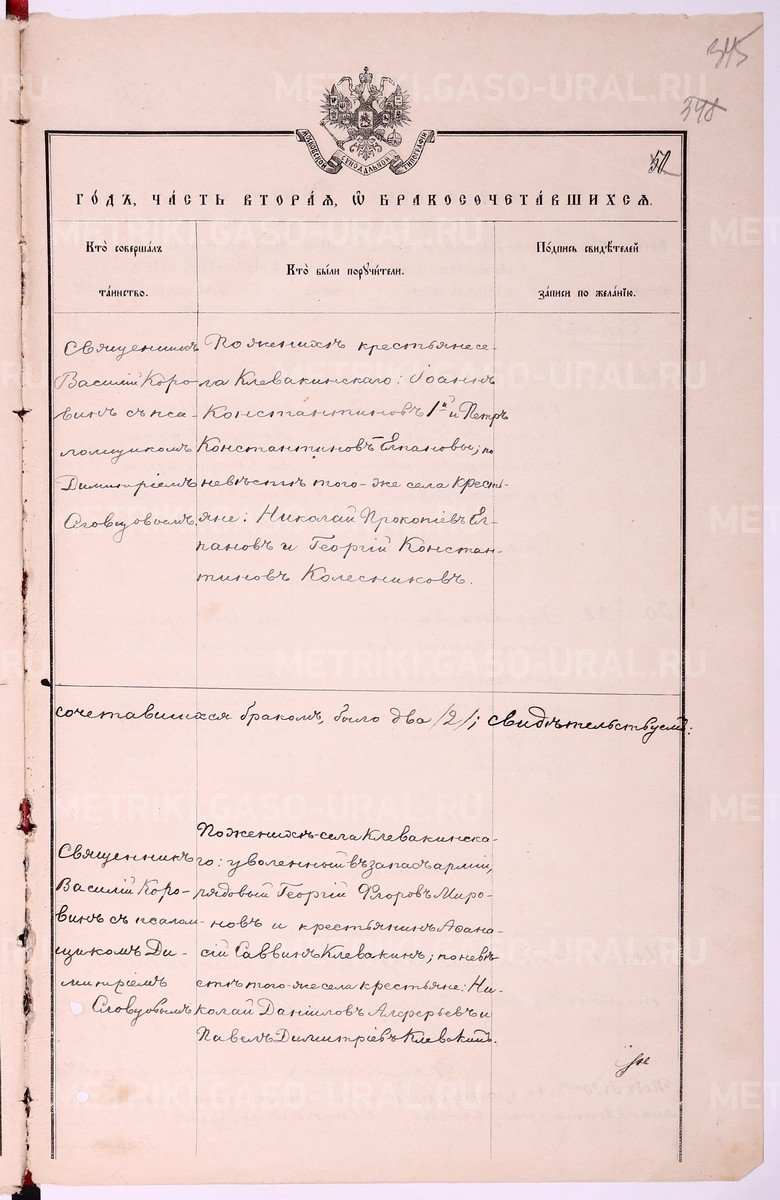 345
398
52
МОСКОВСКОЙ СИНОДАЛЬНОЙ ТИПОГРАФІИ
ГО́ДЪ, ЧА́СТЬ ВТОРА́Ѧ, Ѽ БРАКОСОЧЕТА́ВШИХСѦ.
Кто̀ соверша́лъ
та́инство.
Кто̀ бы́ли поручи́тели.
По́дпись свидѣ́телей
за́писи по жела́нїю.
Священникъ
Василій Коро-
винъ съ пса-
ломщикомъ
Димитріемъ
Словцовымъ
По женихѣ крестьяне се-
ла Клевакинскаго: Іоаннъ
Константиновъ 1й и Петръ
Константиновъ Елпановы; по
невѣстѣ того-же села кресть-
яне: Николай Прокопіевъ Ел-
пановъ и Георгій Констан-
тиновъ Колесниковъ.
сочетавшихся бракомъ, было два /2/; свидѣтельствуемъ:
Священникъ
Василій Коро-
винъ съ псалом-
щикомъ Ди-
митріемъ
Словцовымъ
По женихѣ села Клевакинска-
го: уволенный въ запасъ арміи,
рядовый Георгій Ѳедоровъ Миро-
новъ и крестьянинъ Аѳана-
сій Саввинъ Клевакинъ; по невѣ-
стѣ того-же села крестьяне: Ни-
колай Даніиловъ Алферьевъ и
Павелъ Димитріевъ Клевакинъ.
METRIKI.GASO-URAL.RU